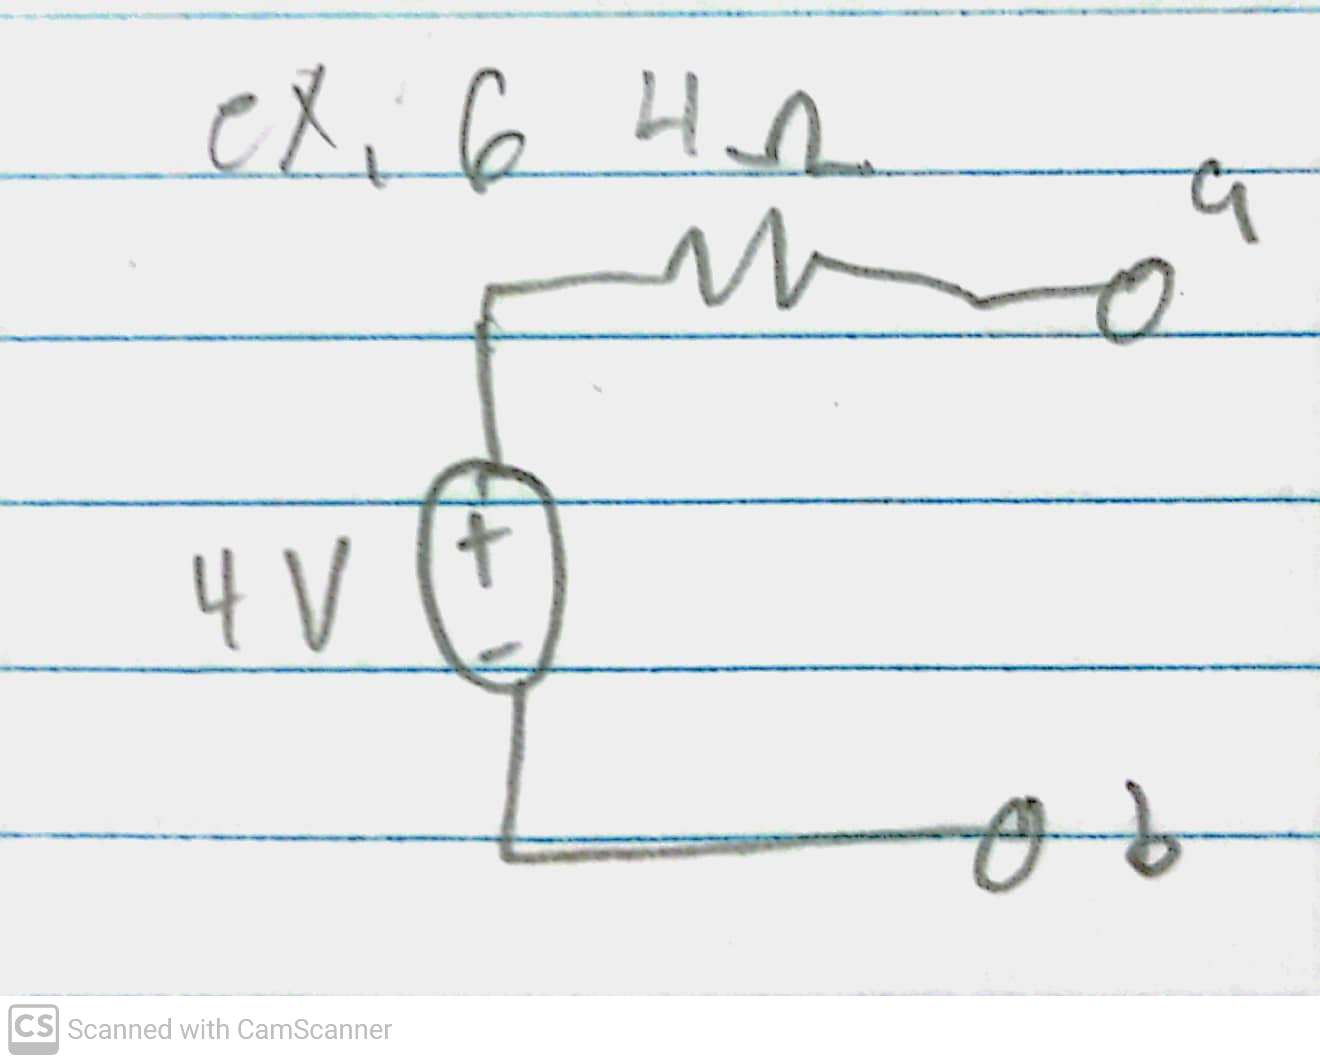 ex. 6 4Ω
a
4 V
+
-
b
CS Scanned with CamScanner